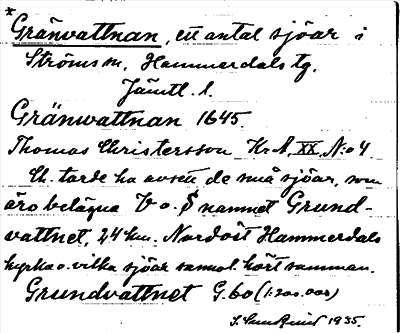 * Gränvattnan, ett antal sjöar i
Ströms sn, Hammerdals tg.
Jämtl. l.
Gränwattnan 1645.
Thomas Christersson Kr. A, XX, N:o 4
Ch. torde ha avsett de små sjöar, som
äro belägna V o. S namnet Grund-
vattnet, 24 km. Nordost Hammerdals
kyrka o. vilka sjöar sannol. hört samman.
Grundvattnet G. 60 (1:200.000)
1935.